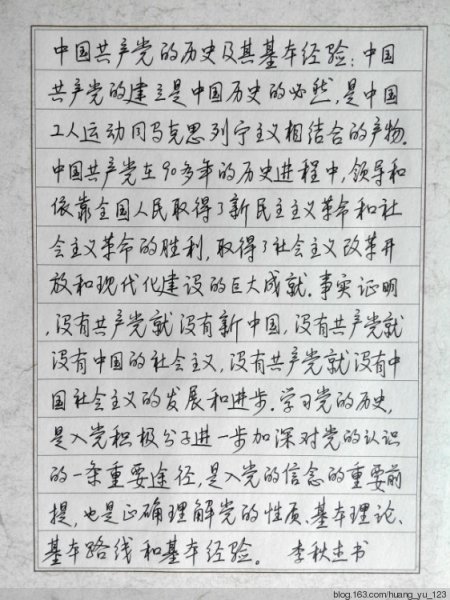 中国共产党的历史及其基本经验:中国
共产党的建立是中国历史的必然,是中国
工人运动同马克思列宁主义相结合的产物.
中国共产党在90多年的历史进程中,领导和
依靠全国人民取得了新民主主义革命和社
会主义革命的胜利,取得了社会主义改革开
放和现代化建设的巨大成就.事实证明
,没有共产党就没有新中国,没有共产党就
没有中国的社会主义,没有共产党就没有中
国社会主义的发展和进步.学习党的历史,
是入党积极分子进一步加深对党的认识
的一条重要途径,是入党的信念的重要前
提,也是正确理解党的性质、基本理论、
基本路线和基本经验。 李秋生书
blog.163.com/huang_yu_123